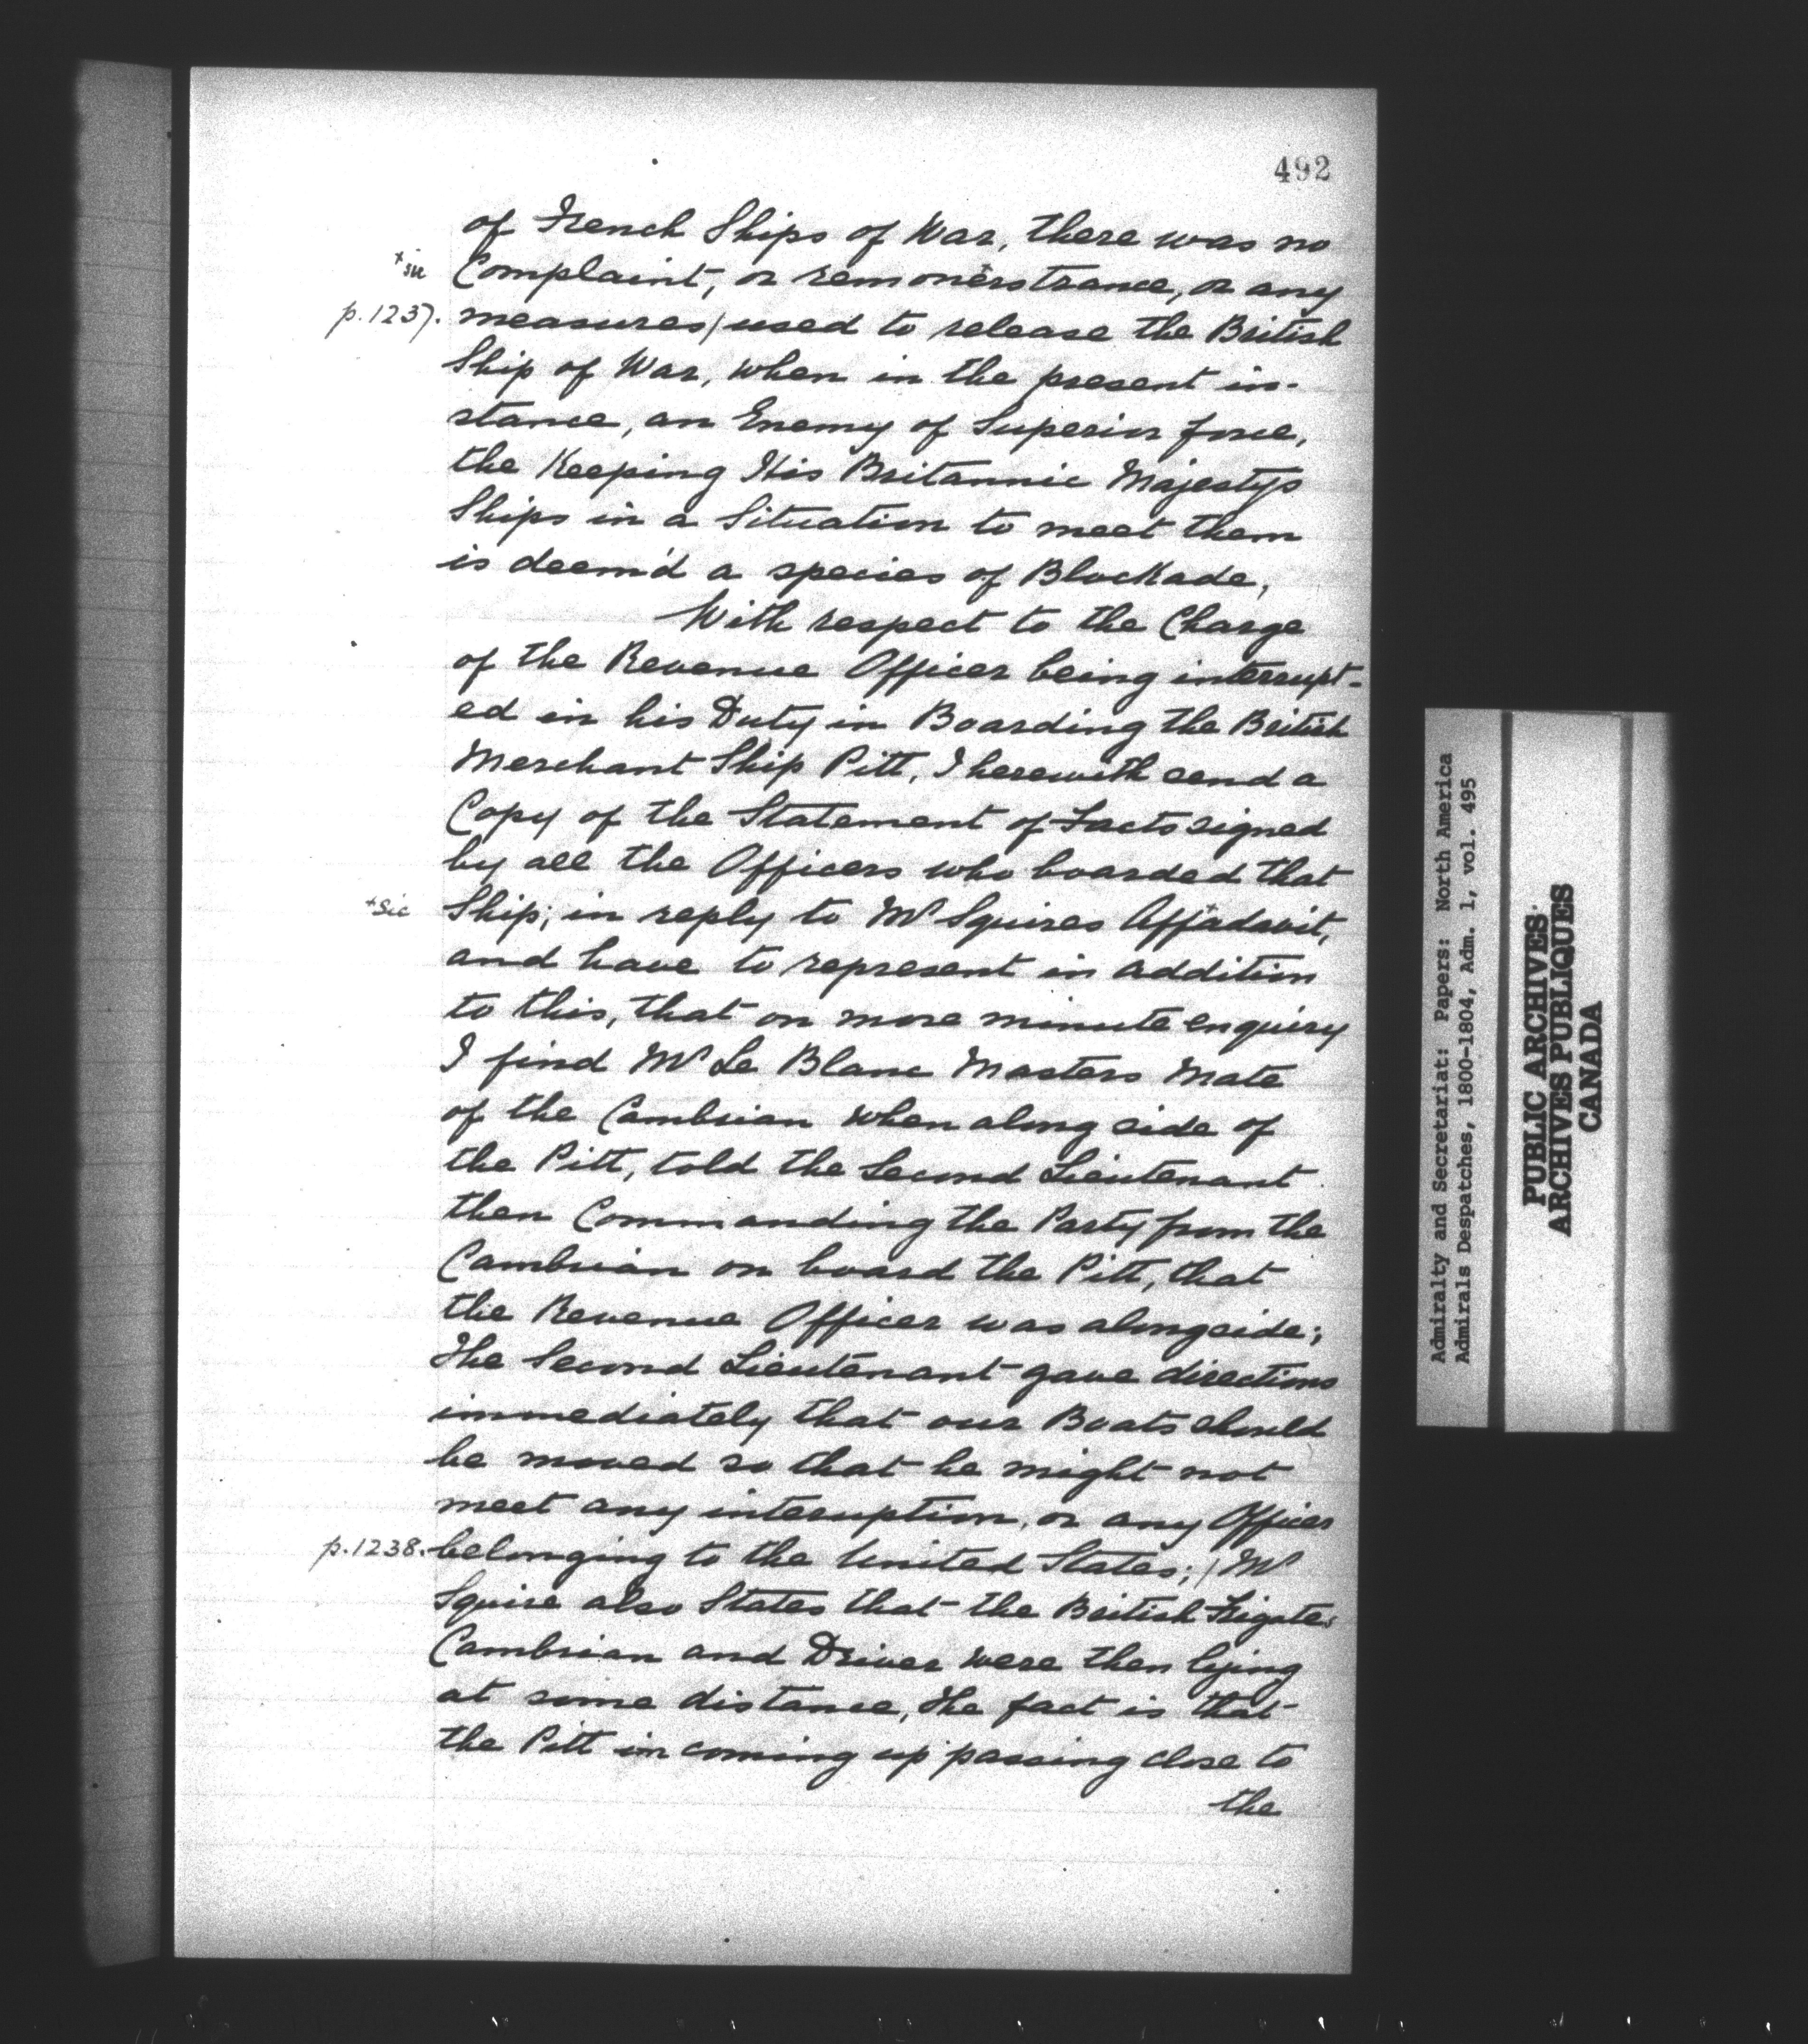 492
of French Ships of War, there was no
+sic Complaint, or remonerstrance, or any
p.1237. measures/used to release the British
Ship of War, when in the present in-
stance, an Enemy of Superior force,
the Keeping His Britannic Majestys
Ships in a Situation to meet them
is deem'd a species of Blockade,
With respect to the Charge
of the Revenue Officer being interrupt-
ed in his Duty in Boarding the British
Merchant Ship Pitt, I herewith send a
Copy of the Statement of Facts signed
by all the Officers who boarded that
+sic Ship; in reply to Mr Squires Affadavit,
and have to represent in addition
to this, that on more minute enquiry
I find Mr Le Blanc Masters Mate
of the Cambrian when along side of
the Pitt, told the Second Lieutenant
then Commanding the Party from the
Cambrian on board the Pitt, that
the Revenue Officer was alongside;
The Second Lieutenant gave directions
immediately that our Boats should
be moved so that he might not
meet any interuption, or any Officer
p.1238. belonging to the United States; / Mr
Squire also States that the British Frigates
Cambrian and Driver were then lying
at some distance, the fact is that
the Pitt in coming up passing close to
the
Admiralty and Secretariat: Papers: North America
Admirals Despatches, 1800-1804, Adm. 1, vol. 495
PUBLIC ARCHIVES
ARCHIVES PUBLIQUES
CANADA